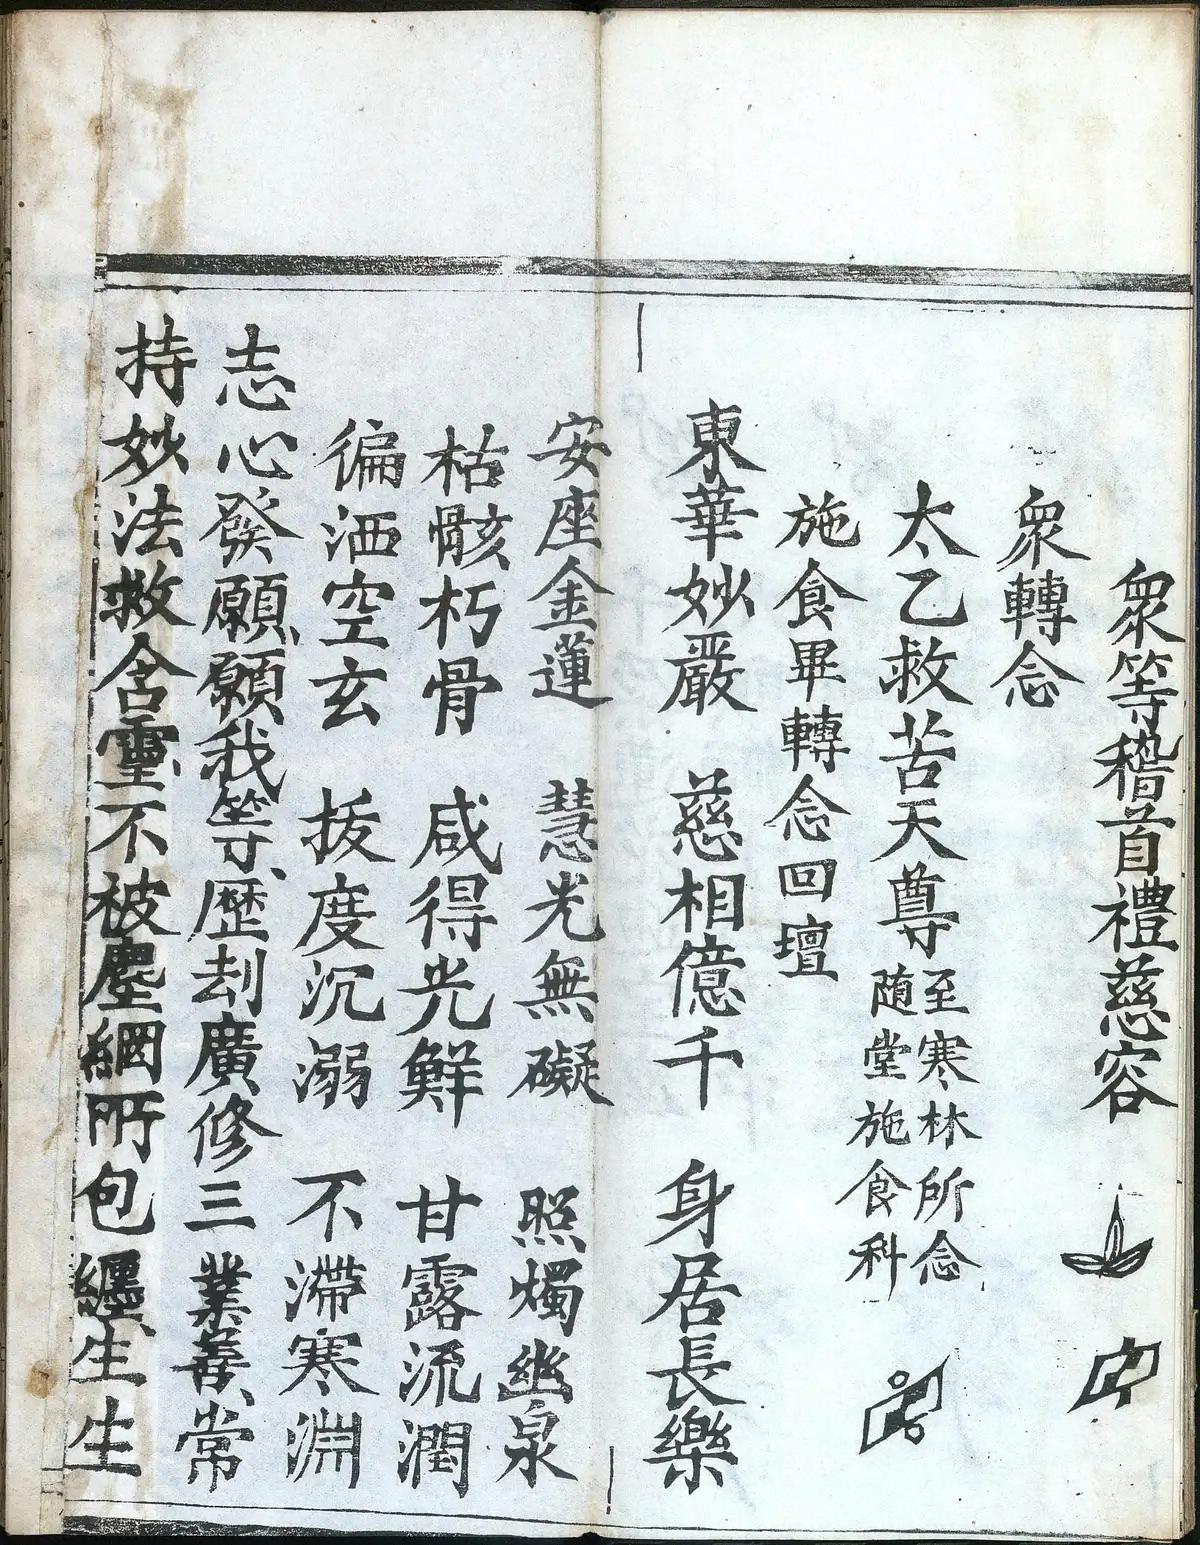 衆等稽首禮慈容
衆轉念
太乙救苦天尊至寒林所念
随堂施食科
施食畢轉念回壇
東華妙嚴　慈相億千　身居長樂
安座金蓮　慧光無礙　照燭幽泉
枯骸朽骨　咸得光鮮　甘露流潤
徧洒空玄　拔度沉溺　不滯寒淵
志心發願、願我等、歷刼廣修三業善、常
持妙法救含靈、不被塵網所包纒、生生